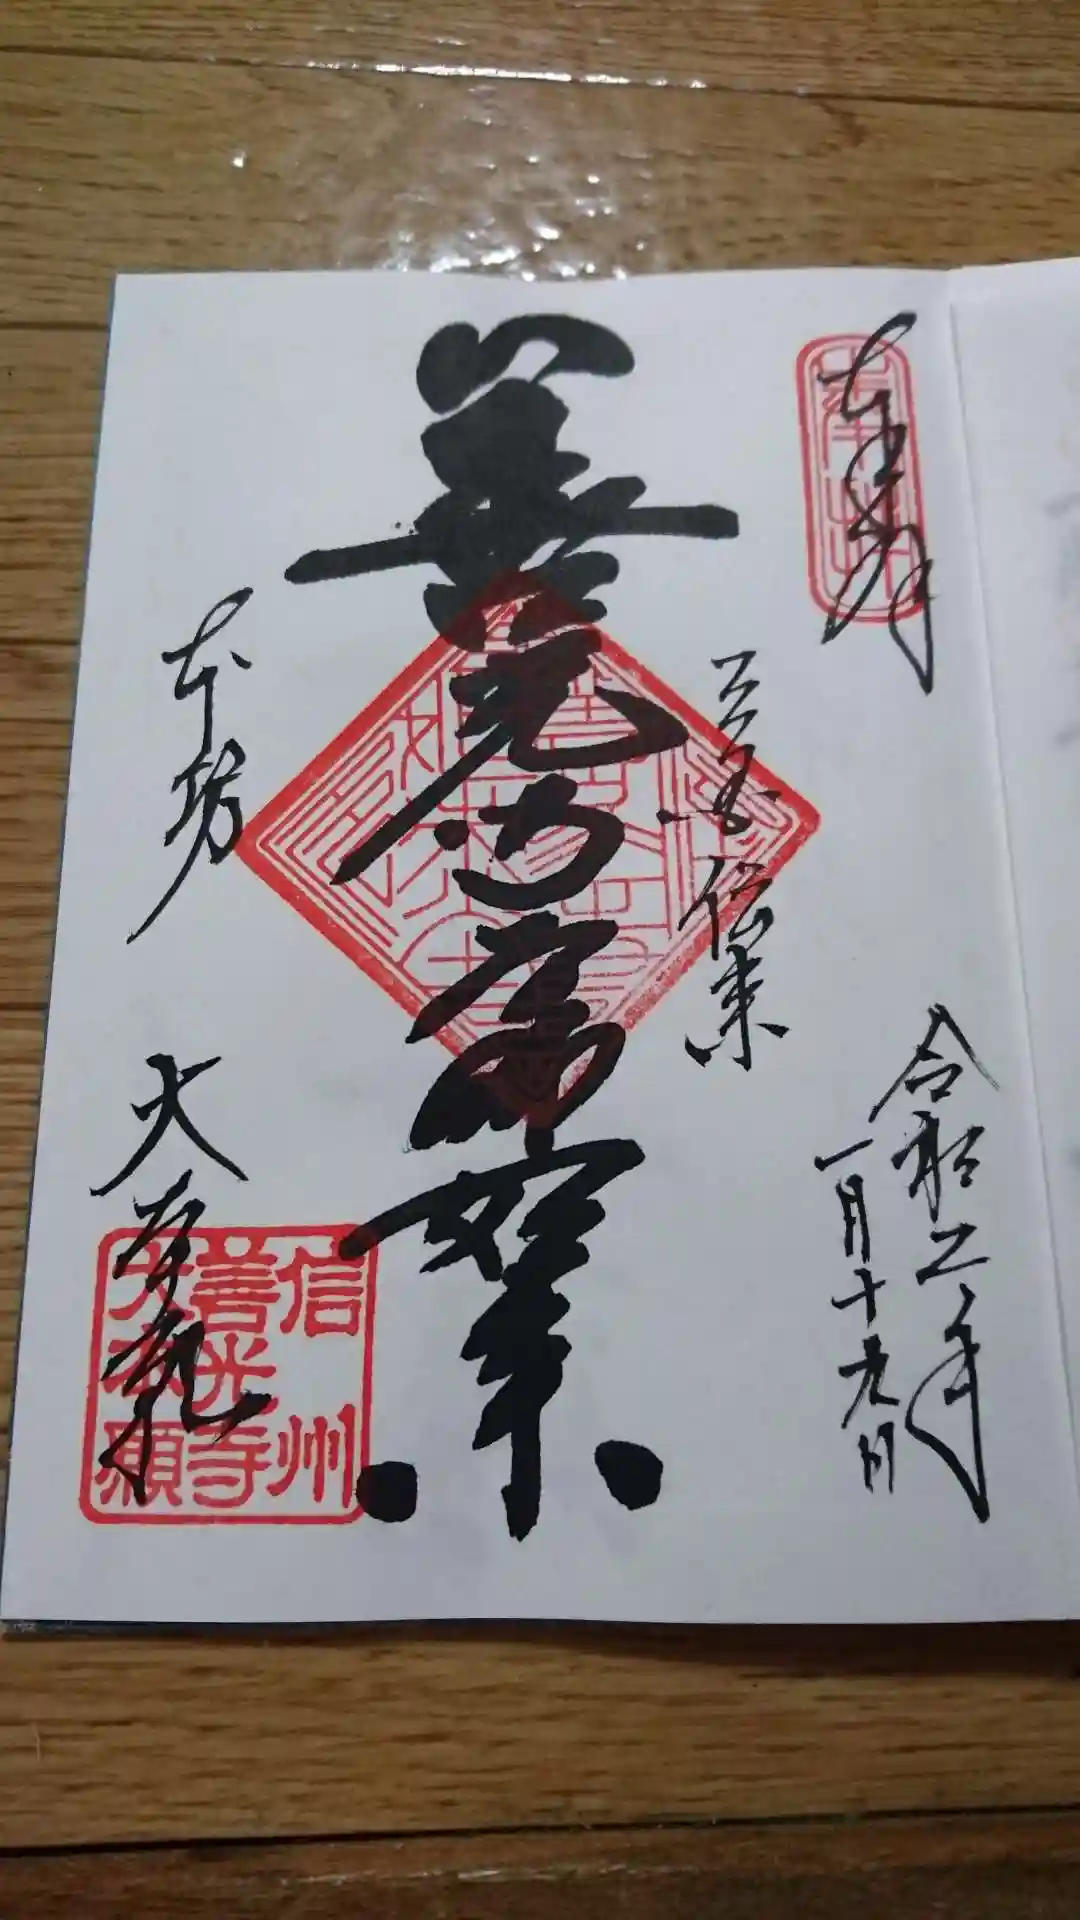 奉拝
令和二年
一月十九日
三国伝来
善光 如来
本坊
大本願
信州
善光寺
大本願